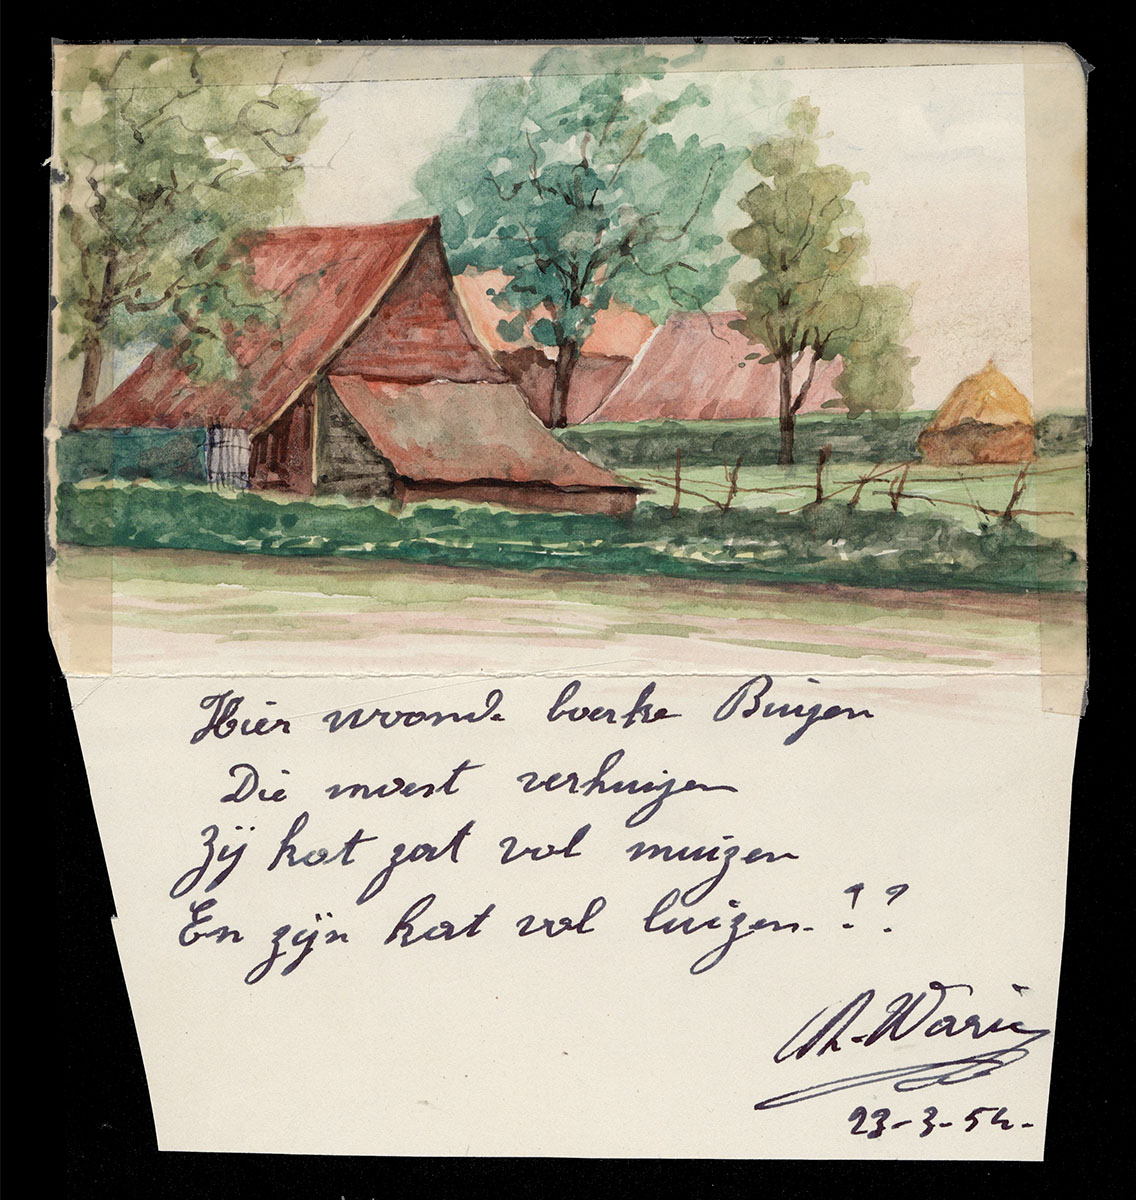 Hier woonde boerke Buizen
Die moest verhuizen
Zij kot zat vol muizen
En zijn kat vol luizen.!?
23-3-54.